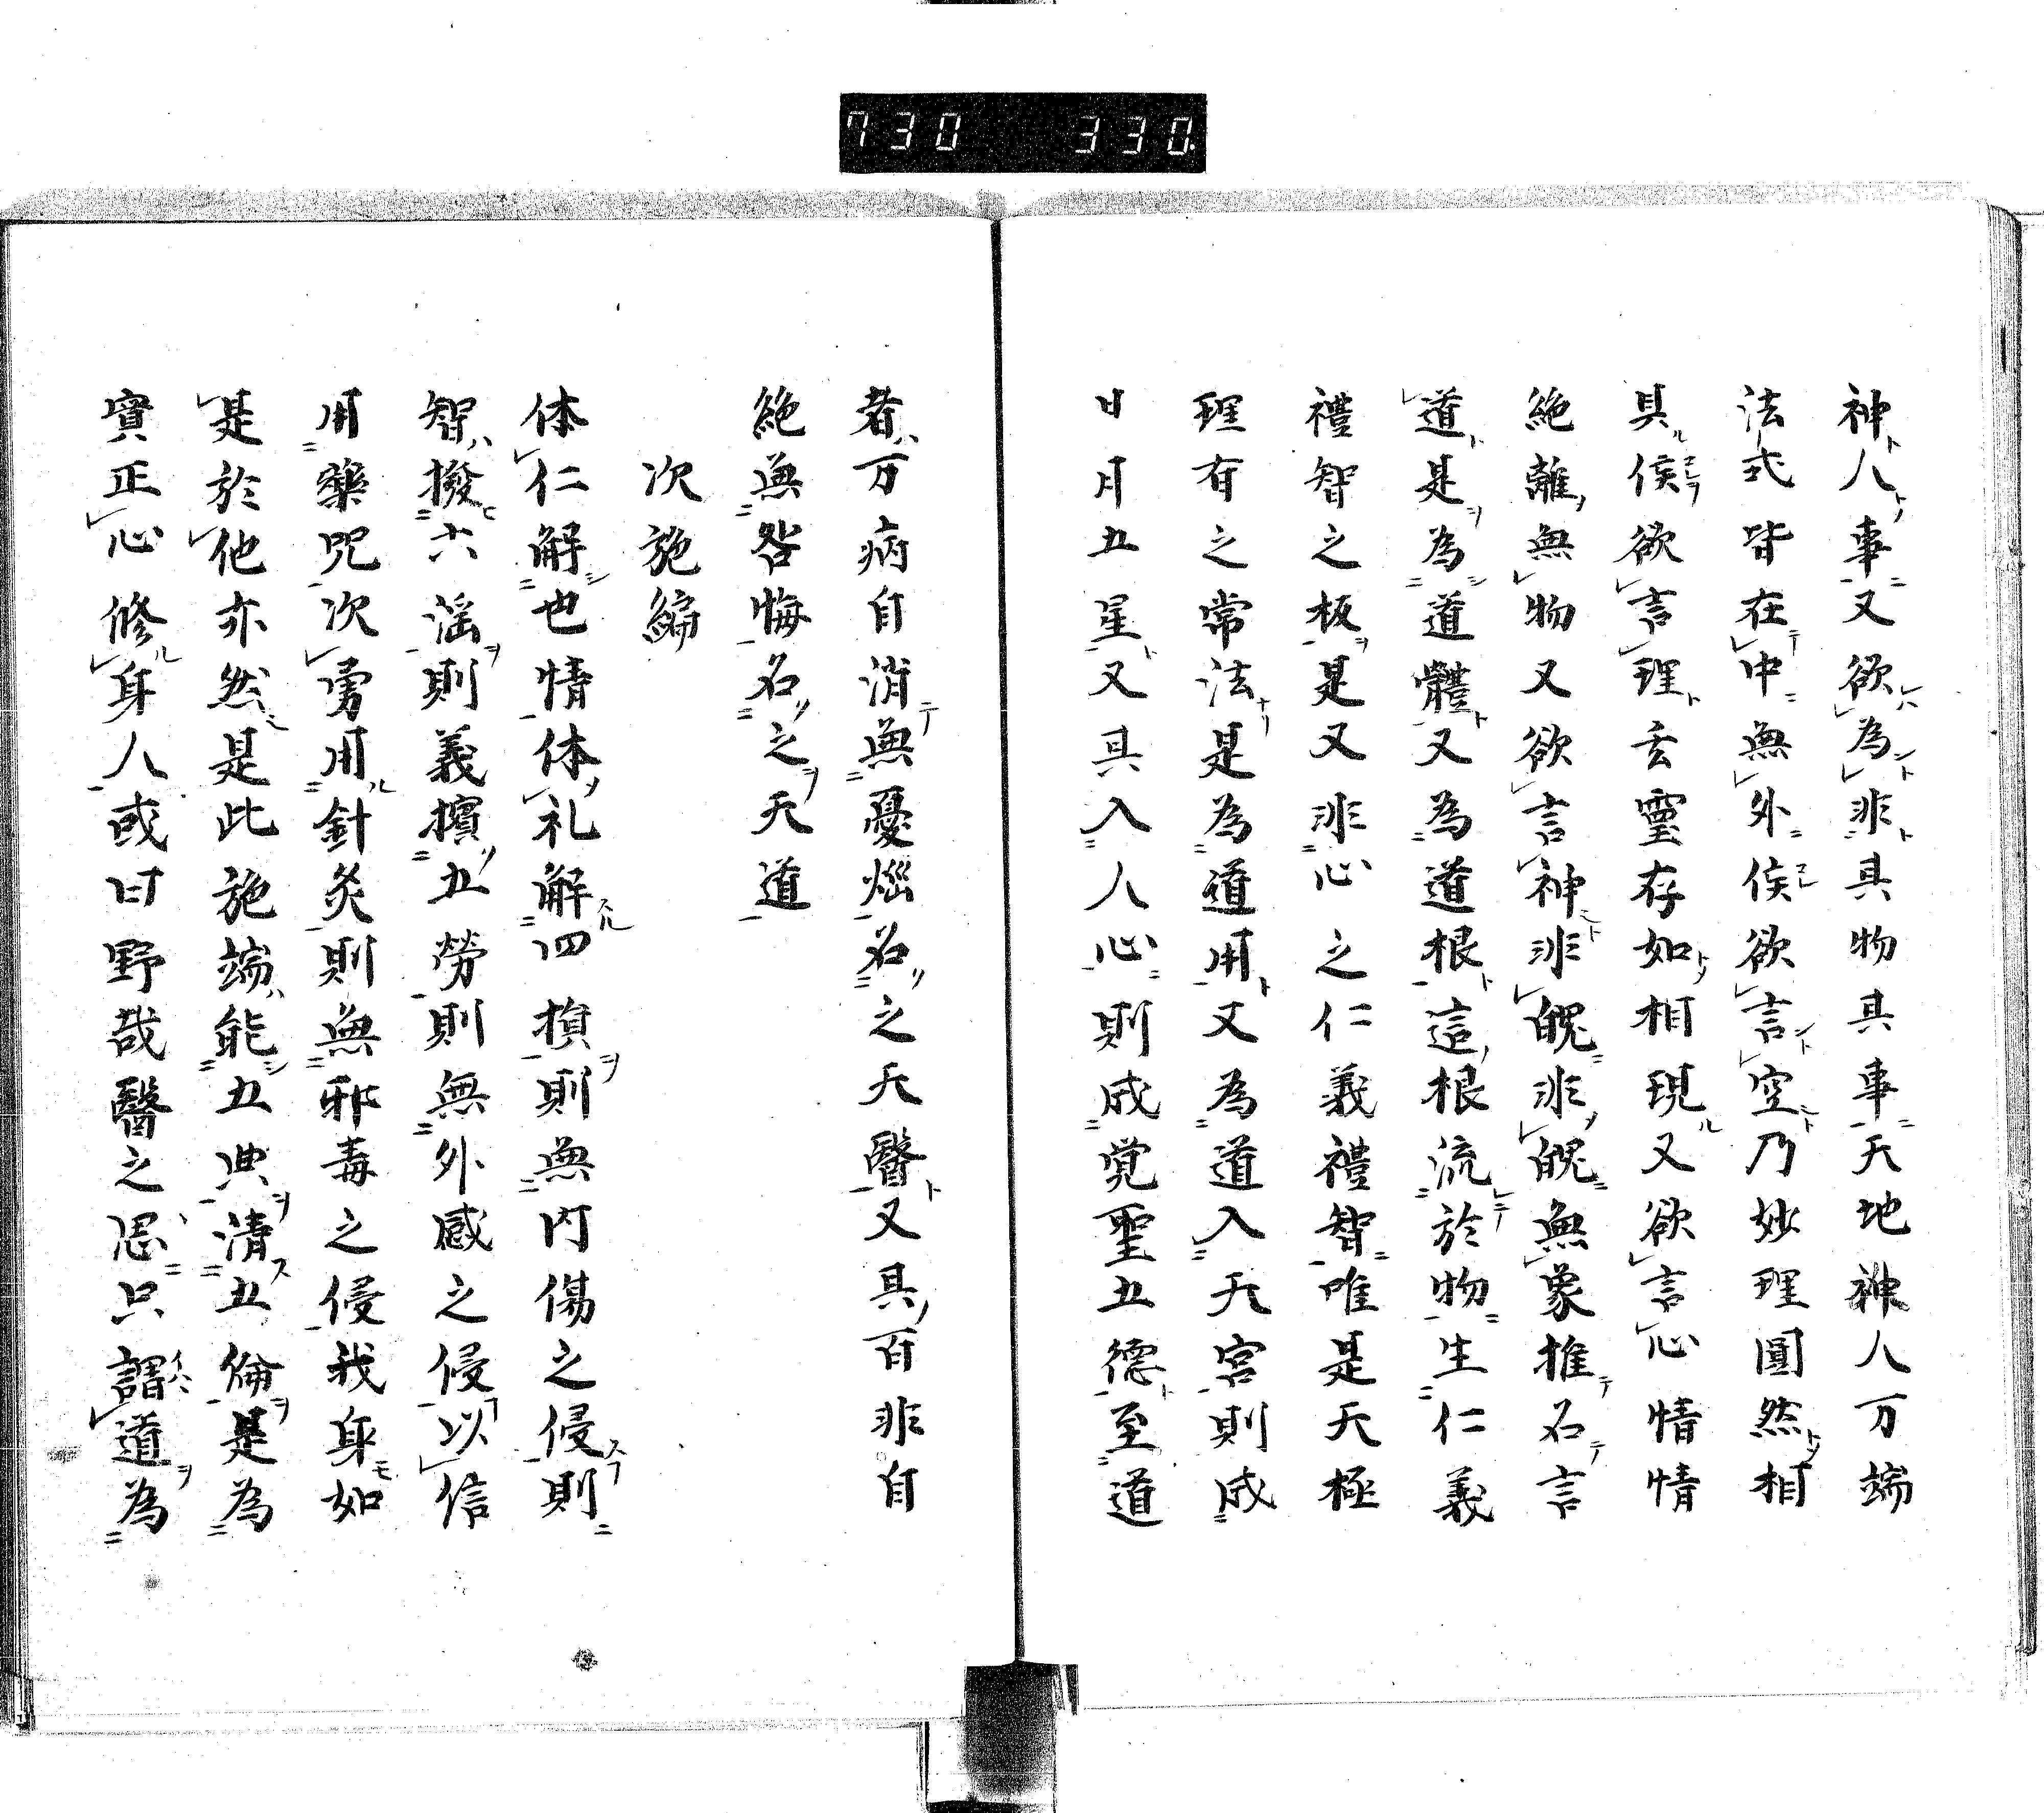 730 330
神人事又欲為非具物具事天地神人万端
法式皆在中無外俟欲言空乃妙理圓然相
具俟欲言理玄霊存如相現又欲言心情情
絶離無物又欲言神非魄非魄無象推名言
道是為道體又為道根這根流於物生仁義
禮智之板是又非心之仁義禮智唯是天極
理有之常法是為道用又為道入天宮則成
日月五星又具入人心則成覚聖五德至道
者万病自消無憂煩名之天醫又具百非自
絶無咎悔名之天道
次施編
体仁解也情体礼解四損則無内傷之侵則
智撥六淫則義擯五勞則無外感之侵以信
用藥咒次勇用針灸則無邪毒之侵我身如
是於他亦然是此施端能五典清五倫是為
實正心修身人或曰野哉醫之思只謂道為